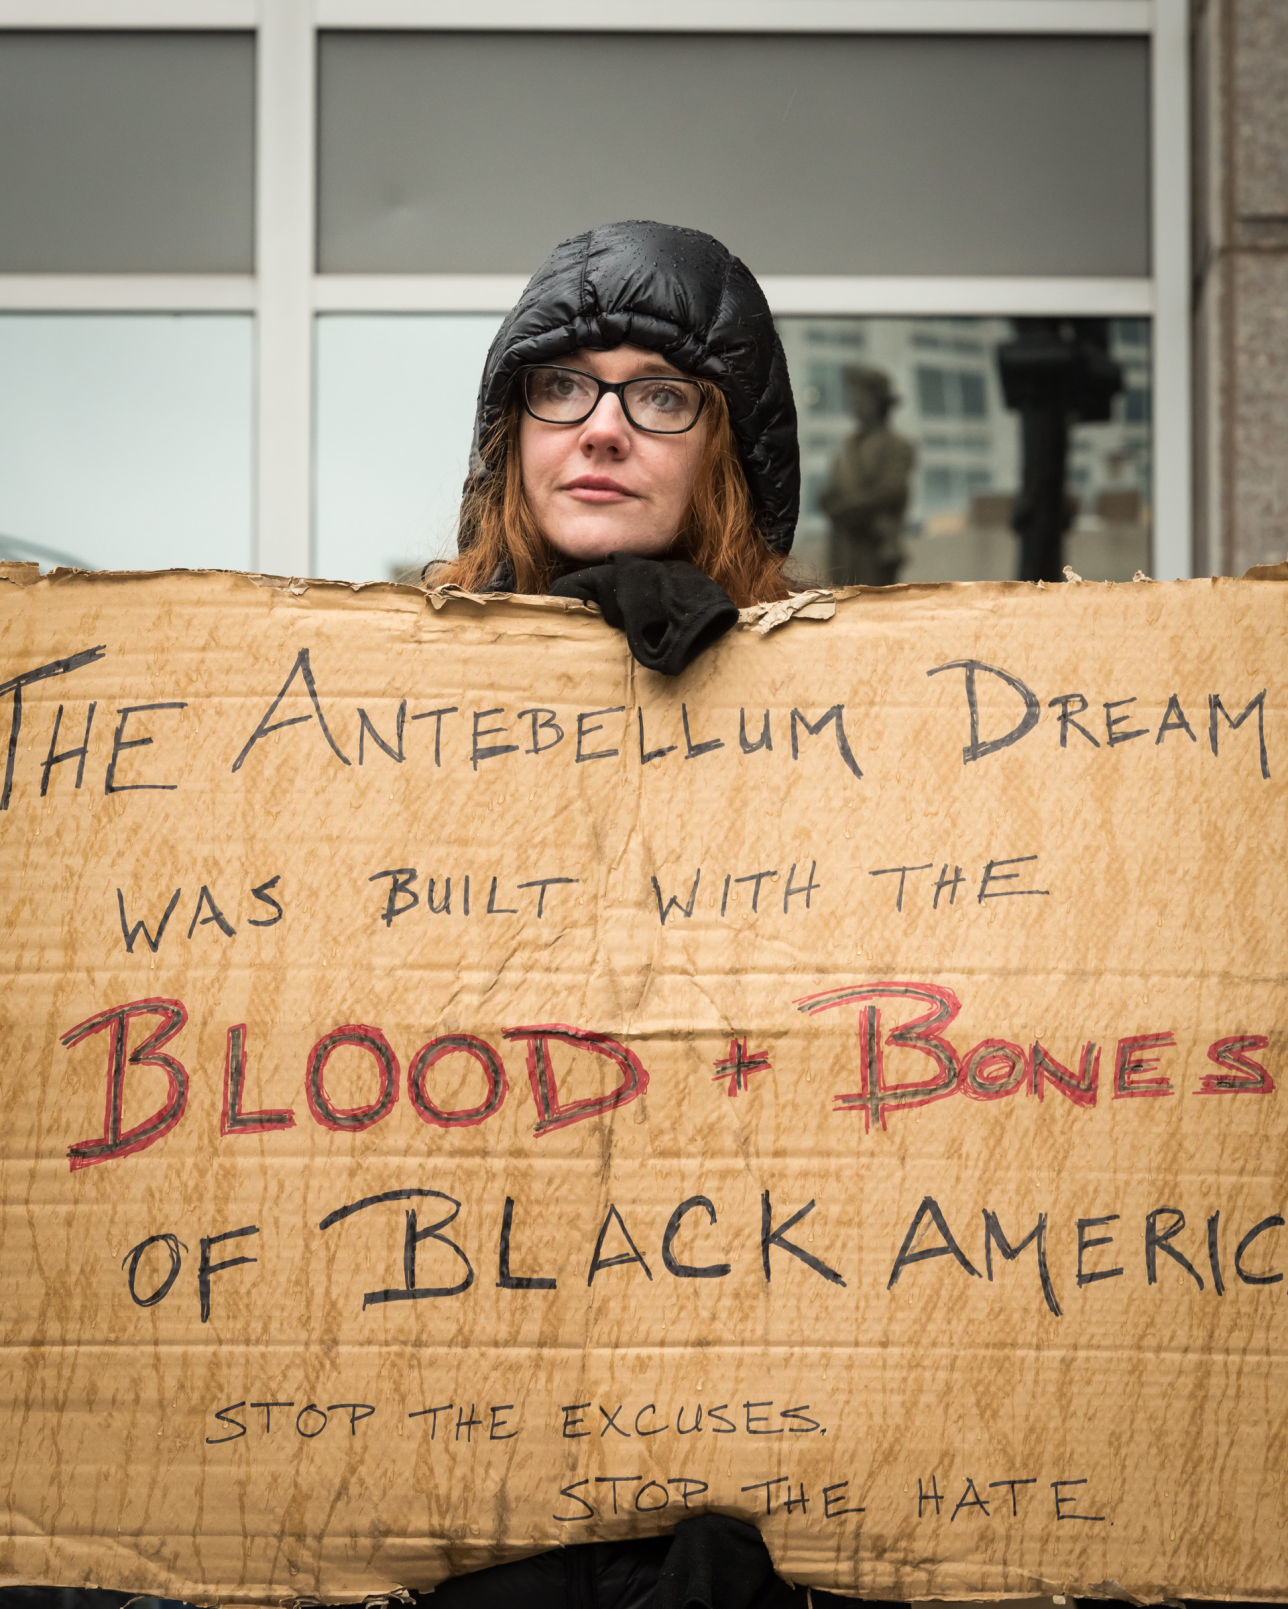 THE ANTEBELLUM DREAM
WAS BUILT WITH THE
BLOOD + BONES
OF BLACK AMERIC
STOP THE EXCUSES.
STOP THE HATE.